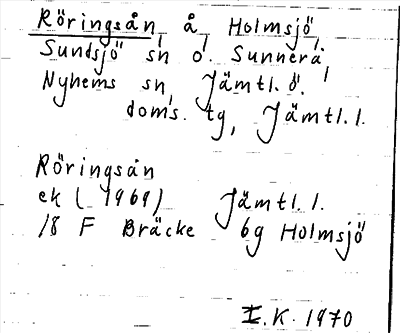 Röringsån, å, Holmsjö,
Sundsjö sn o. Sunnerå,
Nyhems sn, Jämtl. ö.
doms. tg, Jämtl. l.
Röringsån
ek (1969) Jämtl. l.
18 F Bräcke 6g Holmsjö
I.K. 1970